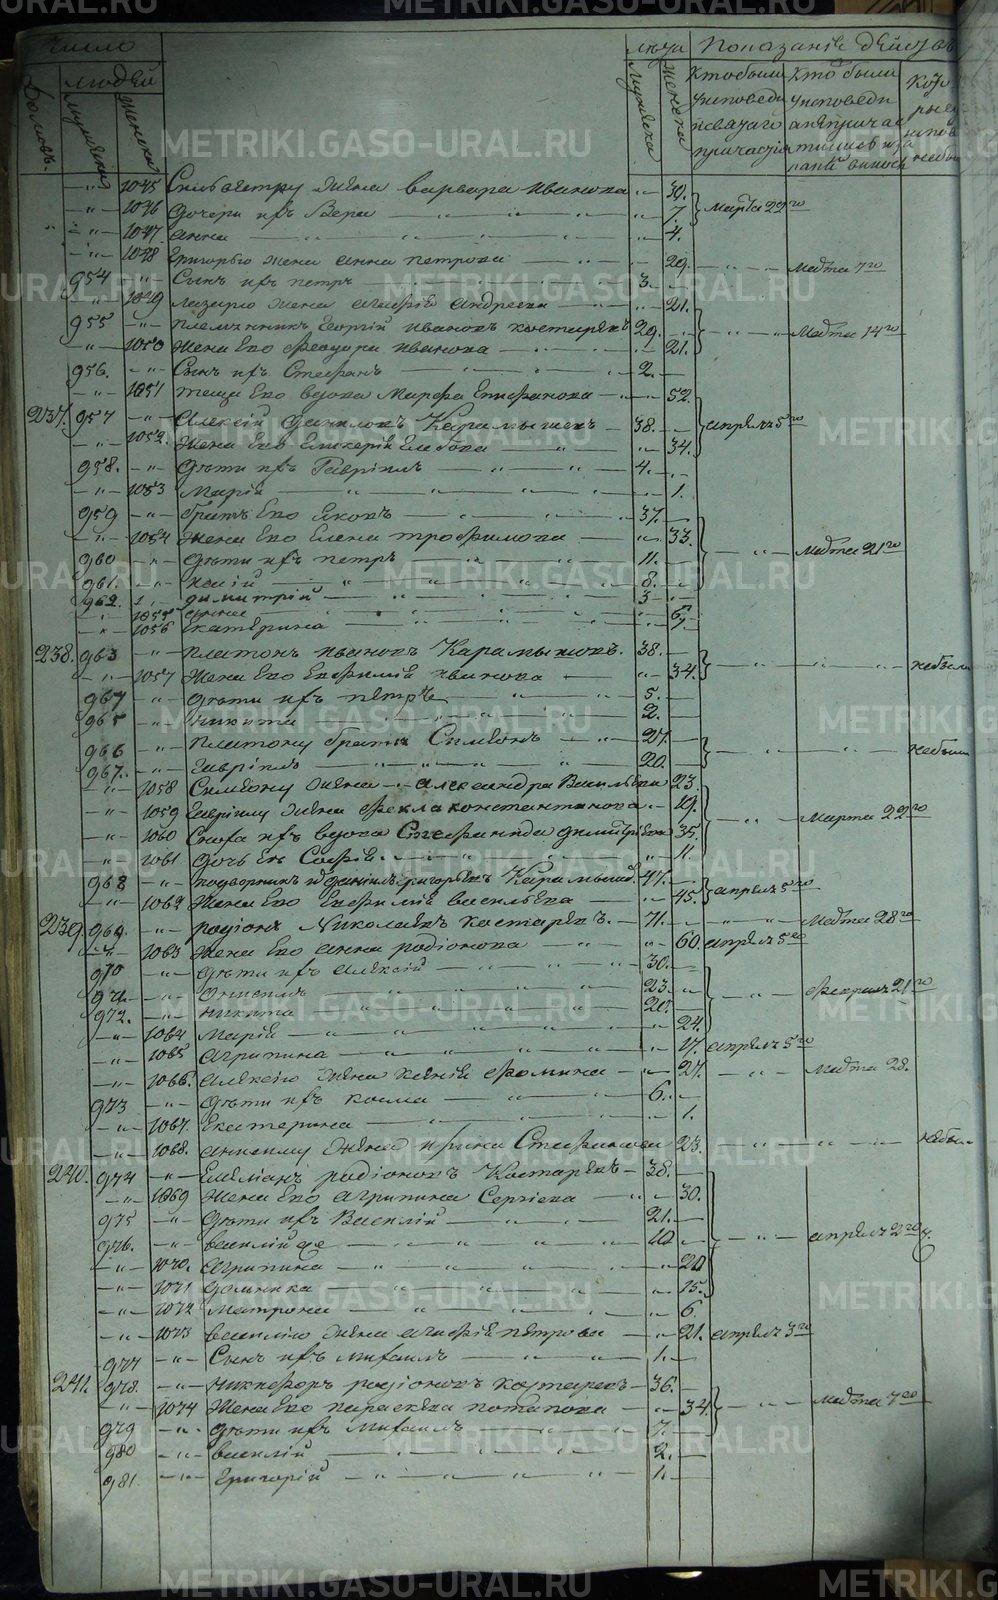 Число
людей
Домовъ.
Мужеска
Женска
лѣта
Мужеска
Женска
Показаніе дѣйств
Кто были у исповеди и святаго причастія
Кто были у исповеди а не причастились
Кото рые у испов не были
" 1045 Сильвестру жена варвара иванова " 30.
" 1046 Дочери ихъ Вера " 7. Марта 22го
" 1047 анна " 4.
" 1048 Григорью жена анна петрова " 29. Марта 7го
954 " Сынъ ихъ петръ 3.
" 1049 лазарю жена агафія андреева " 21.
955 " племянникъ Георгій ивановъ костаревъ 29. Марта 14го
" 1050 Жена Ево феодора иванова " 21.
956. " Сынъ ихъ Стефанъ 2.
" 1051 теща Ево вдова Марфа Епифанова " 52.
237. 957 " Алексій Даниловъ Карамышевъ 38. апреля 5го
" 1052. Жена Ево Гликерія Глебова " 34.
958. " Дѣти ихъ Гавріилъ 4.
" 1053 Марія " 1.
959 " братъ Ево Яковъ 37.
" 1054 Жена Ево Елена трофимова " 33.
960 " Дѣти ихъ петръ 11. Марта 21го
961. " 8.
962. " димитрій 3
" 1055 анна " 6
" 1056 Екатерина "
238. 963 " платонъ ивановъ Карамышовъ. 38.
" 1057 Жена Ево Евфимія иванова " 34. небыли
967 " Дѣти ихъ пётръ 5.
965 " Никита 2.
966 " платону братъ Симеонъ 27.
967. " Гавріилъ 20. небыли
" 1058 Симеону жена александра Васильева 23.
" 1059 Гавріилу жена фекла константинова 19. Марта 22го
" 1060 Сноха ихъ вдова Стефанида димитріева 35.
" 1061 дочь Ея Софія " 11.
968 " подворникъ данійлъ григорьевъ Карамышев. 47.
" 1062 Жена Ево Евфимія васильева " 45. апреля 5го
239 969. " родіонъ Николаевъ костаревъ. 71. Марта 28го
" 1063 Жена Ево анна родіонова " 60. апреля 5го
970 " Дѣти ихъ алексій 30.
971. " Онисимъ 23. февраля 21го
972. " никита 20.
" 1064 Марія " 24.
" 1065 агрипина " 17. апреля 5го
" 1066. алексію жена ксенія фомина " 27. Марта 28.
973 " Дѣти ихъ косма 6.
" 1067. Екатерина " 1.
" 1068. онисиму жена ирина Стефанова 23. небыла
240. 974 " Емеліанъ родіоновъ Костаревъ 38.
" 1069 Жена Ево агрипина Сергіева " 30.
975 " Дѣти ихъ Василій 21.
976. " василій же 10. апреля 2го
" 1070. агрипина " 20
" 1071 Домника " 15.
" 1072 матрона " 6
" 1073 василію жена агафія петрова " 21. апреля 3го
977 " Сынъ ихъ михаилъ 1.
241. 978. " никифоръ родіоновъ костаревъ 36.
" 1074 Жена Ево параскева потапова " 34. Марта 7го
979 " Дѣти ихъ михаилъ 7.
980 " василій 2.
981. " Григорій 1.
METRIKI.GASO-URAL.RU